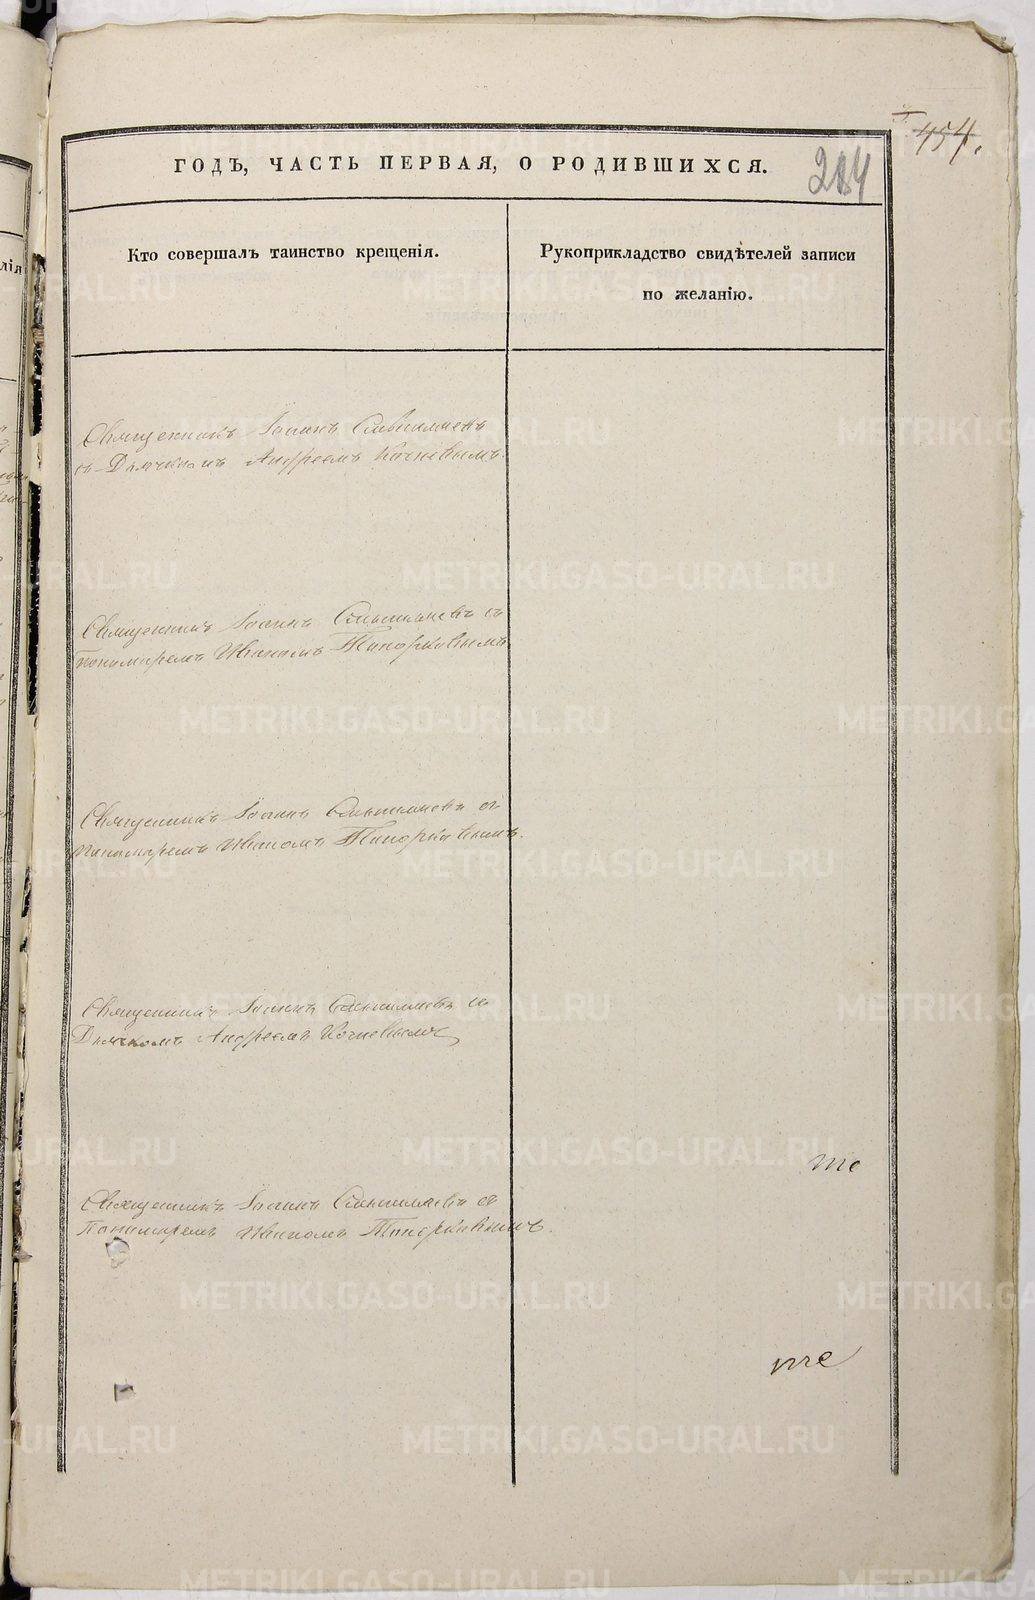 454.
ГОДЪ, ЧАСТЬ ПЕРВАЯ, О РОДИВШИХСЯ.
284
Кто совершалъ таинство крещенія.
Рукоприкладство свидѣтелей записи
по желанію.
Священникъ Іоаннъ
съ Дьячкомъ Андреемъ Кочневымъ.
Священникъ Іоаннъ съ
пономаремъ Иваномъ Топорковымъ.
Священникъ Іоаннъ съ
пономаремъ Иваномъ Топорковымъ.
Священникъ Іоаннъ съ
Дьячкомъ Андреемъ Кочневымъ
Священникъ Іоаннъ съ
Пономаремъ Иваномъ Топорковымъ.
METRIKI.GASO-URAL.RU